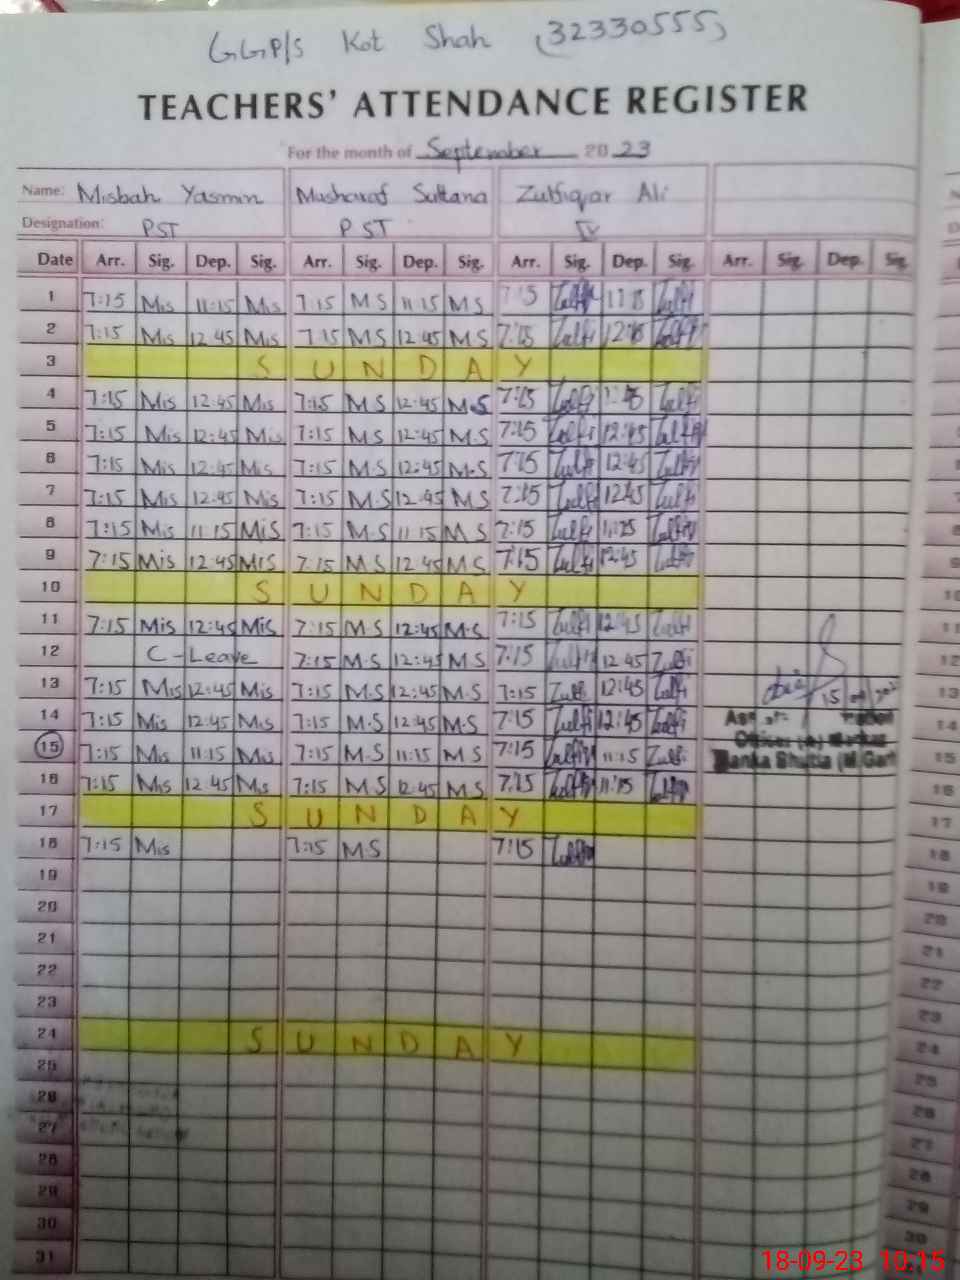 GGP/S Kot Shah (32330555)
TEACHERS' ATTENDANCE REGISTER
For the month of September 20 23
Name: Misbah Yasmin Musharaf Sultana Zulfiqar Ali
Designation: PST PST IV
Date Arr. Sig. Dep. Sig. Arr. Sig. Dep. Sig. Arr. Sig. Dep. Sig. Arr. Sig. Dep. Sig.
1 7:15 Mis 11:15 Mis 7:15 M S 11:15 M S 7:15 Zulfi Zulfi
2 7:15 Mis 12:45 Mis 7:15 M S 12:45 M S 7:15 Zulfi 12:45 Zulfi
3 S U N D A Y
4 7:15 Mis 12:45 Mis 7:15 M S 12:45 M.S 7:15 Zulfi Zulfi
5 7:15 Mis 12:45 Mis 7:15 M S 12:45 M.S 7:15 Zulfi 12:45 Zulfi
6 7:15 Mis 12:45 Mis 7:15 M.S 12:45 M.S 7:15 Zulfi 12:45 Zulfi
7 7:15 Mis 12:45 Mis 7:15 M.S 12:45 M S 7:15 Zulfi 12:45 Zulfi
8 7:15 Mis 11:15 Mis 7:15 M.S 11:15 M S 7:15 Zulfi 11:15 Zulfi
9 7:15 Mis 12:45 Mis 7:15 M S 12:45 M S 7:15 Zulfi 12:45 Zulfi
10 S U N D A Y
11 7:15 Mis 12:45 Mis 7:15 M.S 12:45 M.S 7:15 Zulfi 12:45 Zulfi
12 C-Leave 7:15 M.S 12:45 M S 7:15 Zulfi 12:45 Zulfi
13 7:15 Mis 12:45 Mis 7:15 M.S 12:45 M.S 7:15 Zulfi 12:45 Zulfi 15
14 7:15 Mis 12:45 Mis 7:15 M.S 12:45 M.S 7:15 Zulfi 12:45 Zulfi
15 7:15 Mis 11:15 Mis 7:15 M.S 11:15 M S 7:15 Zulfi 11:15 Zulfi
16 7:15 Mis 12:45 Mis 7:15 M.S 12:45 M S 7:15 Zulfi 11:15 Zulfi
17 S U N D A Y
18 7:15 Mis 7:15 M S 7:15 Zulfi
19
20
21
22
23
24 S U N D A Y
25
26
27
28
29
30
31
18-09-23 10:15